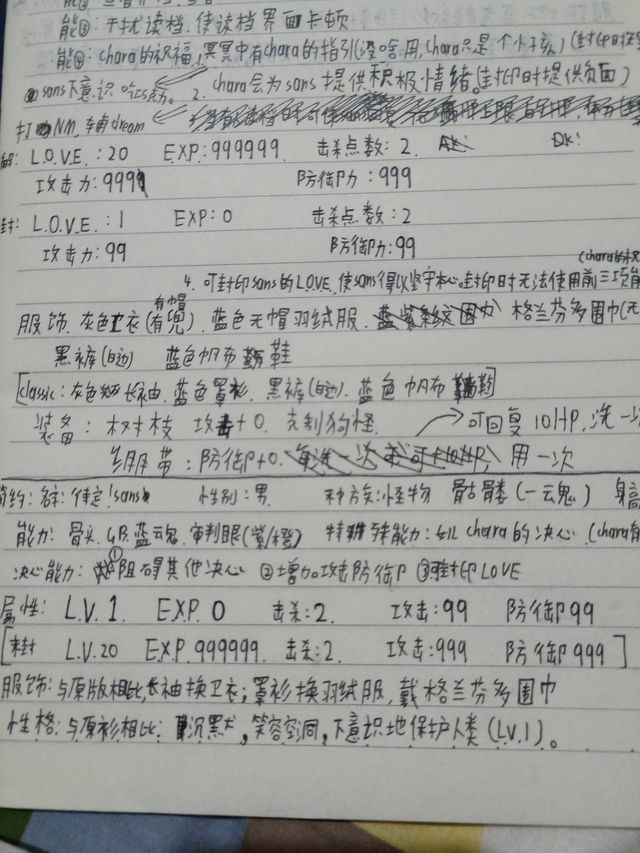 能③: 干扰读档, 使读档界面卡顿
能④: chara的祝福, 冥冥中有chara的指引(没啥用, chara只是个小孩)
sans下意识 2. chara会为sans提供积极情绪(封印时提供负面)
打NM, 辅dream
L.O.V.E.:20 EXP:999999. 击杀点数:2.
攻击力:9999 防御力:999
L.O.V.E.:1 EXP:0 击杀点数:2
攻击力:99 防御力:99
4. 可封印sans的LOVE, 使sans得以坚守本心. 封印时无法使用前三项
服饰: 灰色卫衣(有兜), 蓝色无帽羽绒服, 格兰芬多围巾
有帽
黑裤(白边) 蓝色帆布鞋
[classic: 灰色长袖, 蓝色罩衫, 黑裤(白边). 蓝色帆布鞋]
装备: 树枝 攻击+0. 克制狗怪. 可回复10HP, 洗一次
绷带: 防御+0. 用一次
简约: 名字: 待定!sans 性别: 男. 种族:怪物 骷髅(一云鬼) 身高
能力: 骨头, GB, 蓝云鬼, 审判眼(紫/橙) 特殊能力: 如chara的决心. (chara有
决心能力: ①阻碍其他决心 ②增加攻击防御 ③封印LOVE
属性: L.V. 1. EXP. 0 击杀:2. 攻击:99 防御99
[未封 L.V.20 EXP. 999999. 击杀:2. 攻击:999 防御999]
服饰:与原版相比,长袖换卫衣;罩衫换羽绒服,戴格兰芬多围巾
性格:与原衫相比: 沉默, 笑容空洞, 下意识地保护人类(LV.1)。